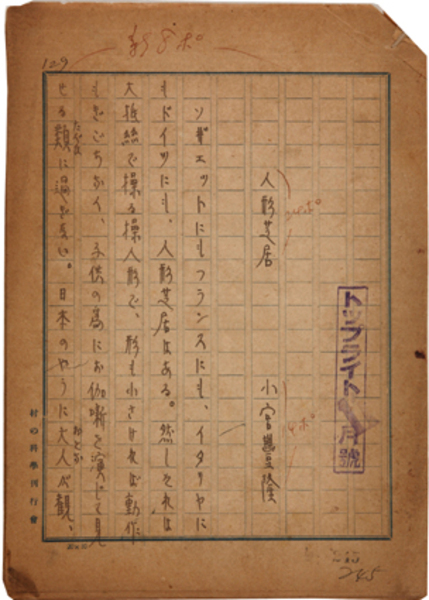 129
新8ポ
トップライト
月號
人形芝居 小宮豐隆
ソヴエットにもフランスにも、イタリヤに
もドイツにも、人形芝居はある。然しそれは
大抵絲で操る操人形で、形も小さければ動作
もぎごちなく、子供の為にお伽噺を演じて見
せる類に過ぎない。日本のやうに大人が観、
村の科學刊行會
245